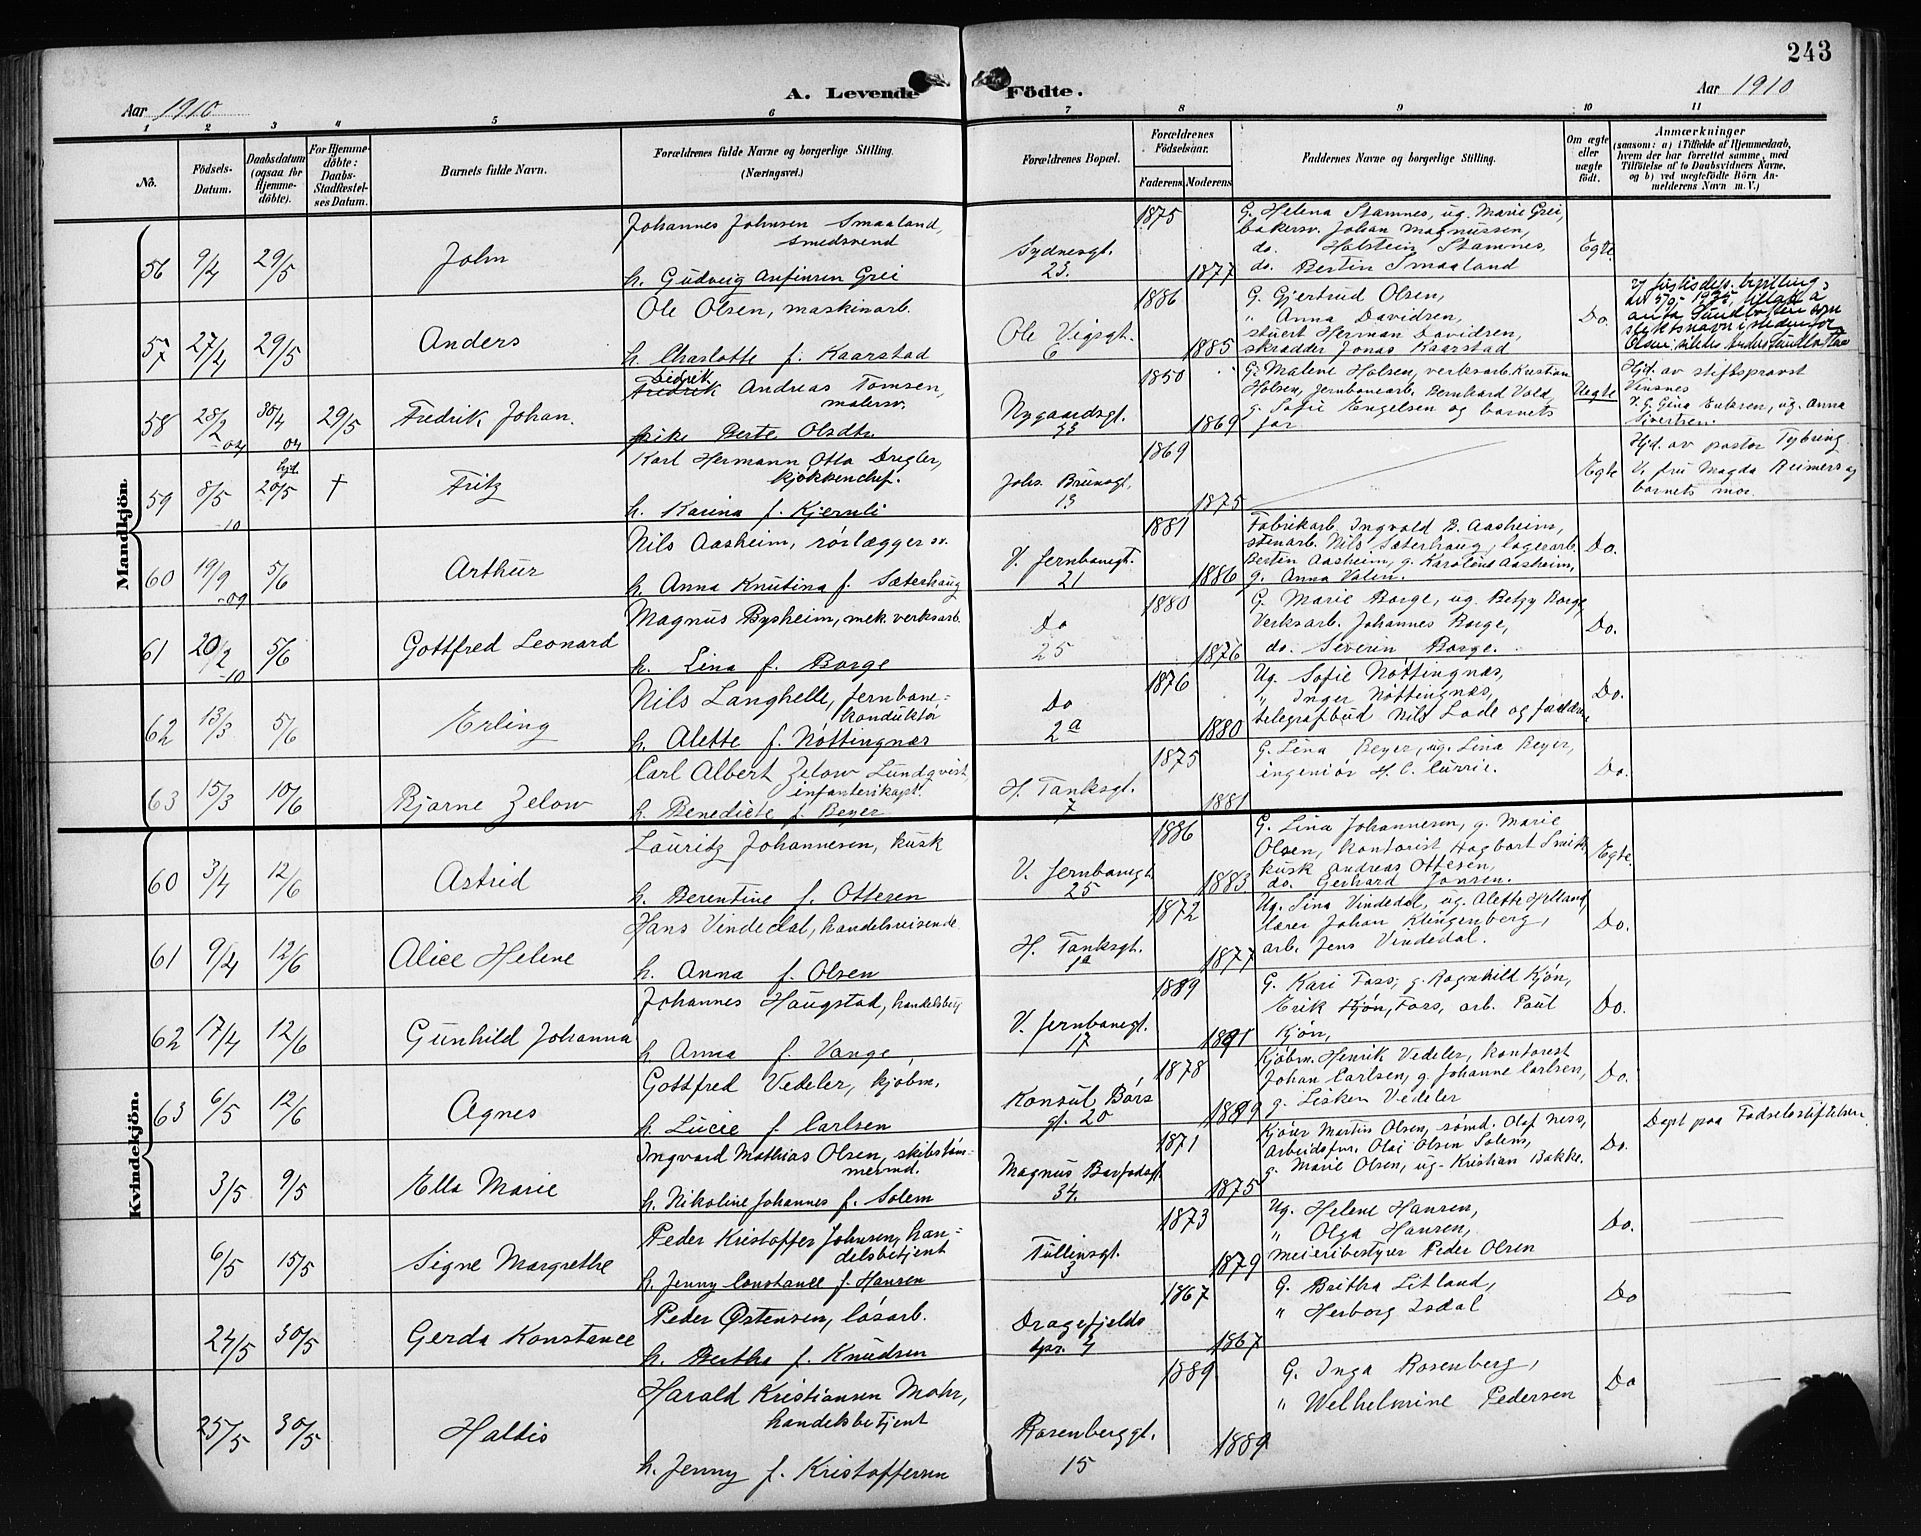 243
Aar 1910
A. Levende Födte.
Aar 1910
1 2 3 4 5 6 7 8 9 10 11
No.
Födsels-Datum.
Daabsdatum (ogsaa for Hjemmedöbte).
For Hjemmedöbte: Daabs-Stadfæstelses Datum.
Barnets fulde Navn.
Forældrenes fulde Navne og borgerlige Stilling. (Næringsvei.)
Forældrenes Bopæl.
Forældrenes Födselsaar.
Faderens Moderens
Faddernes Navne og borgerlige Stilling.
Om ægte eller uægte födt.
Anmærkninger
(saasom: a) i Tilfælde af Hjemmedaab, hvem der har forrettet samme, med Tilföielse af to Daabsvidners Navne, og b) ved uægtefödte Börn Anmelderens Navn m. V.)
Mandkjön.
56 9/4 29/5 John
Johannes Johnsen Smaaland, smedsvend
h. Gudveig Anfinsen Grei
Sydnesgt. 23.
1875 1877
G. Helena Stamnes, ug. Marie Grei,
bakersv. Johan Magnussen,
do. Holstein Stamnes,
do. Bertin Smaaland
Egte
57 27/4 29/5 Anders
Ole Olsen, maskinarb.
h. Charlotte f. Kaarstad
Ole Vigsgt. 6
1886 1885
G. Gjertrud Olsen,
" Anna Davidsen,
stuert Herman Davidsen,
skrædder Jonas Kaarstad
Do.
58 28/2 -04 30/4 04 29/5 Fredrik Johan.
Fredrik Andreas Tomsen, malersv.
pike Berte Olsdtr.
Nygaardsgt. 33
1850 1869
G. Malene Holsen, verksarb. Kristian
Holsen, jernbanearb. Bernhard Vold,
g. Sofie Engelsen og barnets
far
Uegte
Hjd. av stiftsprovst
Vinsnes
59 8/5 -10 hjd. 20/5 † Fritz
Karl Hermann Otto Dregler, kjøkkenchef.
h. Karina f. Kjernli
Johs. Brunsgt. 13
1869 1875
Egte
Hjd. av pastor Tybring
V. fru Magda Reimers og
barnets mor.
60 19/9 -09 5/6 Arthur
Nils Aasheim, rørlægger sv.
h. Anna Knutina f. Sæterhaug
V. Jernbanegt. 21
1881 1886
Fabrikarb. Ingvald E. Aasheim,
stenarb. Nils Sæterhaug, lagerarb.
Bertin Aasheim, g. Karoline Aasheim,
g. Anna Valen.
Do.
61 20/2 -10 5/6 Gottfred Leonard
Magnus Bysheim, mek. verksarb.
h. Lina f. Borge
Do 25
1880 1876
G. Marie Borge, ug. Betzy Borge,
Verksarb. Johannes Borge,
do. Severin Borge.
Do.
62 13/3 5/6 Erling
Nils Langhelle, jernbane-konduktør
h. Alette f. Nøttingnæs
Do 2a
1876 1880
Ug. Sofie Nøttingnæs,
" Inger Nøttingnæs,
telegrafbud Nils Lode og forældrene
Do.
63 15/3 10/6 Bjarne Zelow
Carl Albert Zelow Lundqvist infanterikapt.
h. Benedicte f. Beyer
H. Tanksgt. 7
1875 1881
G. Lina Beyer, ug. Lina Beyer,
ingeniør H. C. Currie.
Do.
Kvindekjön.
60 3/4 12/6 Astrid
Lauritz Johannesen, kusk
h. Berentine f. Ottesen
V. Jernbanegt. 25
1886 1883
G. Lina Johannesen, g. Marie
Olsen, kontorist Hagbart Smith,
kusk Andreas Ottesen,
do. Gerhard Jonsen.
Egte.
61 9/4 12/6 Alice Helene
Hans Vindedal, handelsreisende
h. Anna f. Olsen
H. Tanksgt. 1a
1872 1877
Ug. Lina Vindedal, ug. Alette Helland,
lærer Johan Klingenberg,
arb. Jens Vindedal.
Do.
62 17/4 12/6 Gunhild Johanna
Johannes Haugstad, handelsbetj
h. Anna f. Vange
V. Jernbanegt. 17
1889 1891
G. Kari Foss, g. Ragnhild Kjøn,
Erik Kjøn, Foss, arb. Paul
Kjøn,
Do.
63 6/5 12/6 Agnes
Gottfred Vedeler, kjøbm.
h. Lucie f. Carlsen
Konsul Børs gt. 20
1878 1889
Kjøbm. Henrik Vedeler, kontorist
Johan Carlsen, g. Johanne Carlsen,
g. Lisken Vedeler
Do.
3/5 9/5 Ella Marie
Ingvard Mathias Olsen, skibstømmermd.
h. Nikoline Johannes f. Solem
Magnus Barfodsgt 34.
1871 1875
Kjører Martin Olsen, sømd. Olaf Ness,
Arbeidsfor. Olai Olsen Solem,
g. Marie Olsen, ug. Kristian Bakke.
Do.
Døpt paa Fødselsstiftelsen.
6/5 15/5 Signe Margrethe
Peder Kristoffer Johnsen, handelsbetjent
h. Jenny Constance f. Hansen
Tullinsgt. 3
1873 1879
Ug. Helene Hansen,
" Olga Hansen,
meieribestyrer Peder Olsen
Do.
24/5 30/5 Gerda Konstance
Peder Østensen, løsarb.
h. Bertha f. Knudsen
Dragefjelds tpr. 4
1867 1867
G. Britha Litland,
" Herborg Isdal
Do
25/5 30/5 Haldis
Harald Kristiansen Mohr, handelsbetjent
h. Jenny f. Kristoffersen
Rosenberggt. 15
1889 1889
G. Inga Rosenberg,
" Welhelmine Pedersen
Do